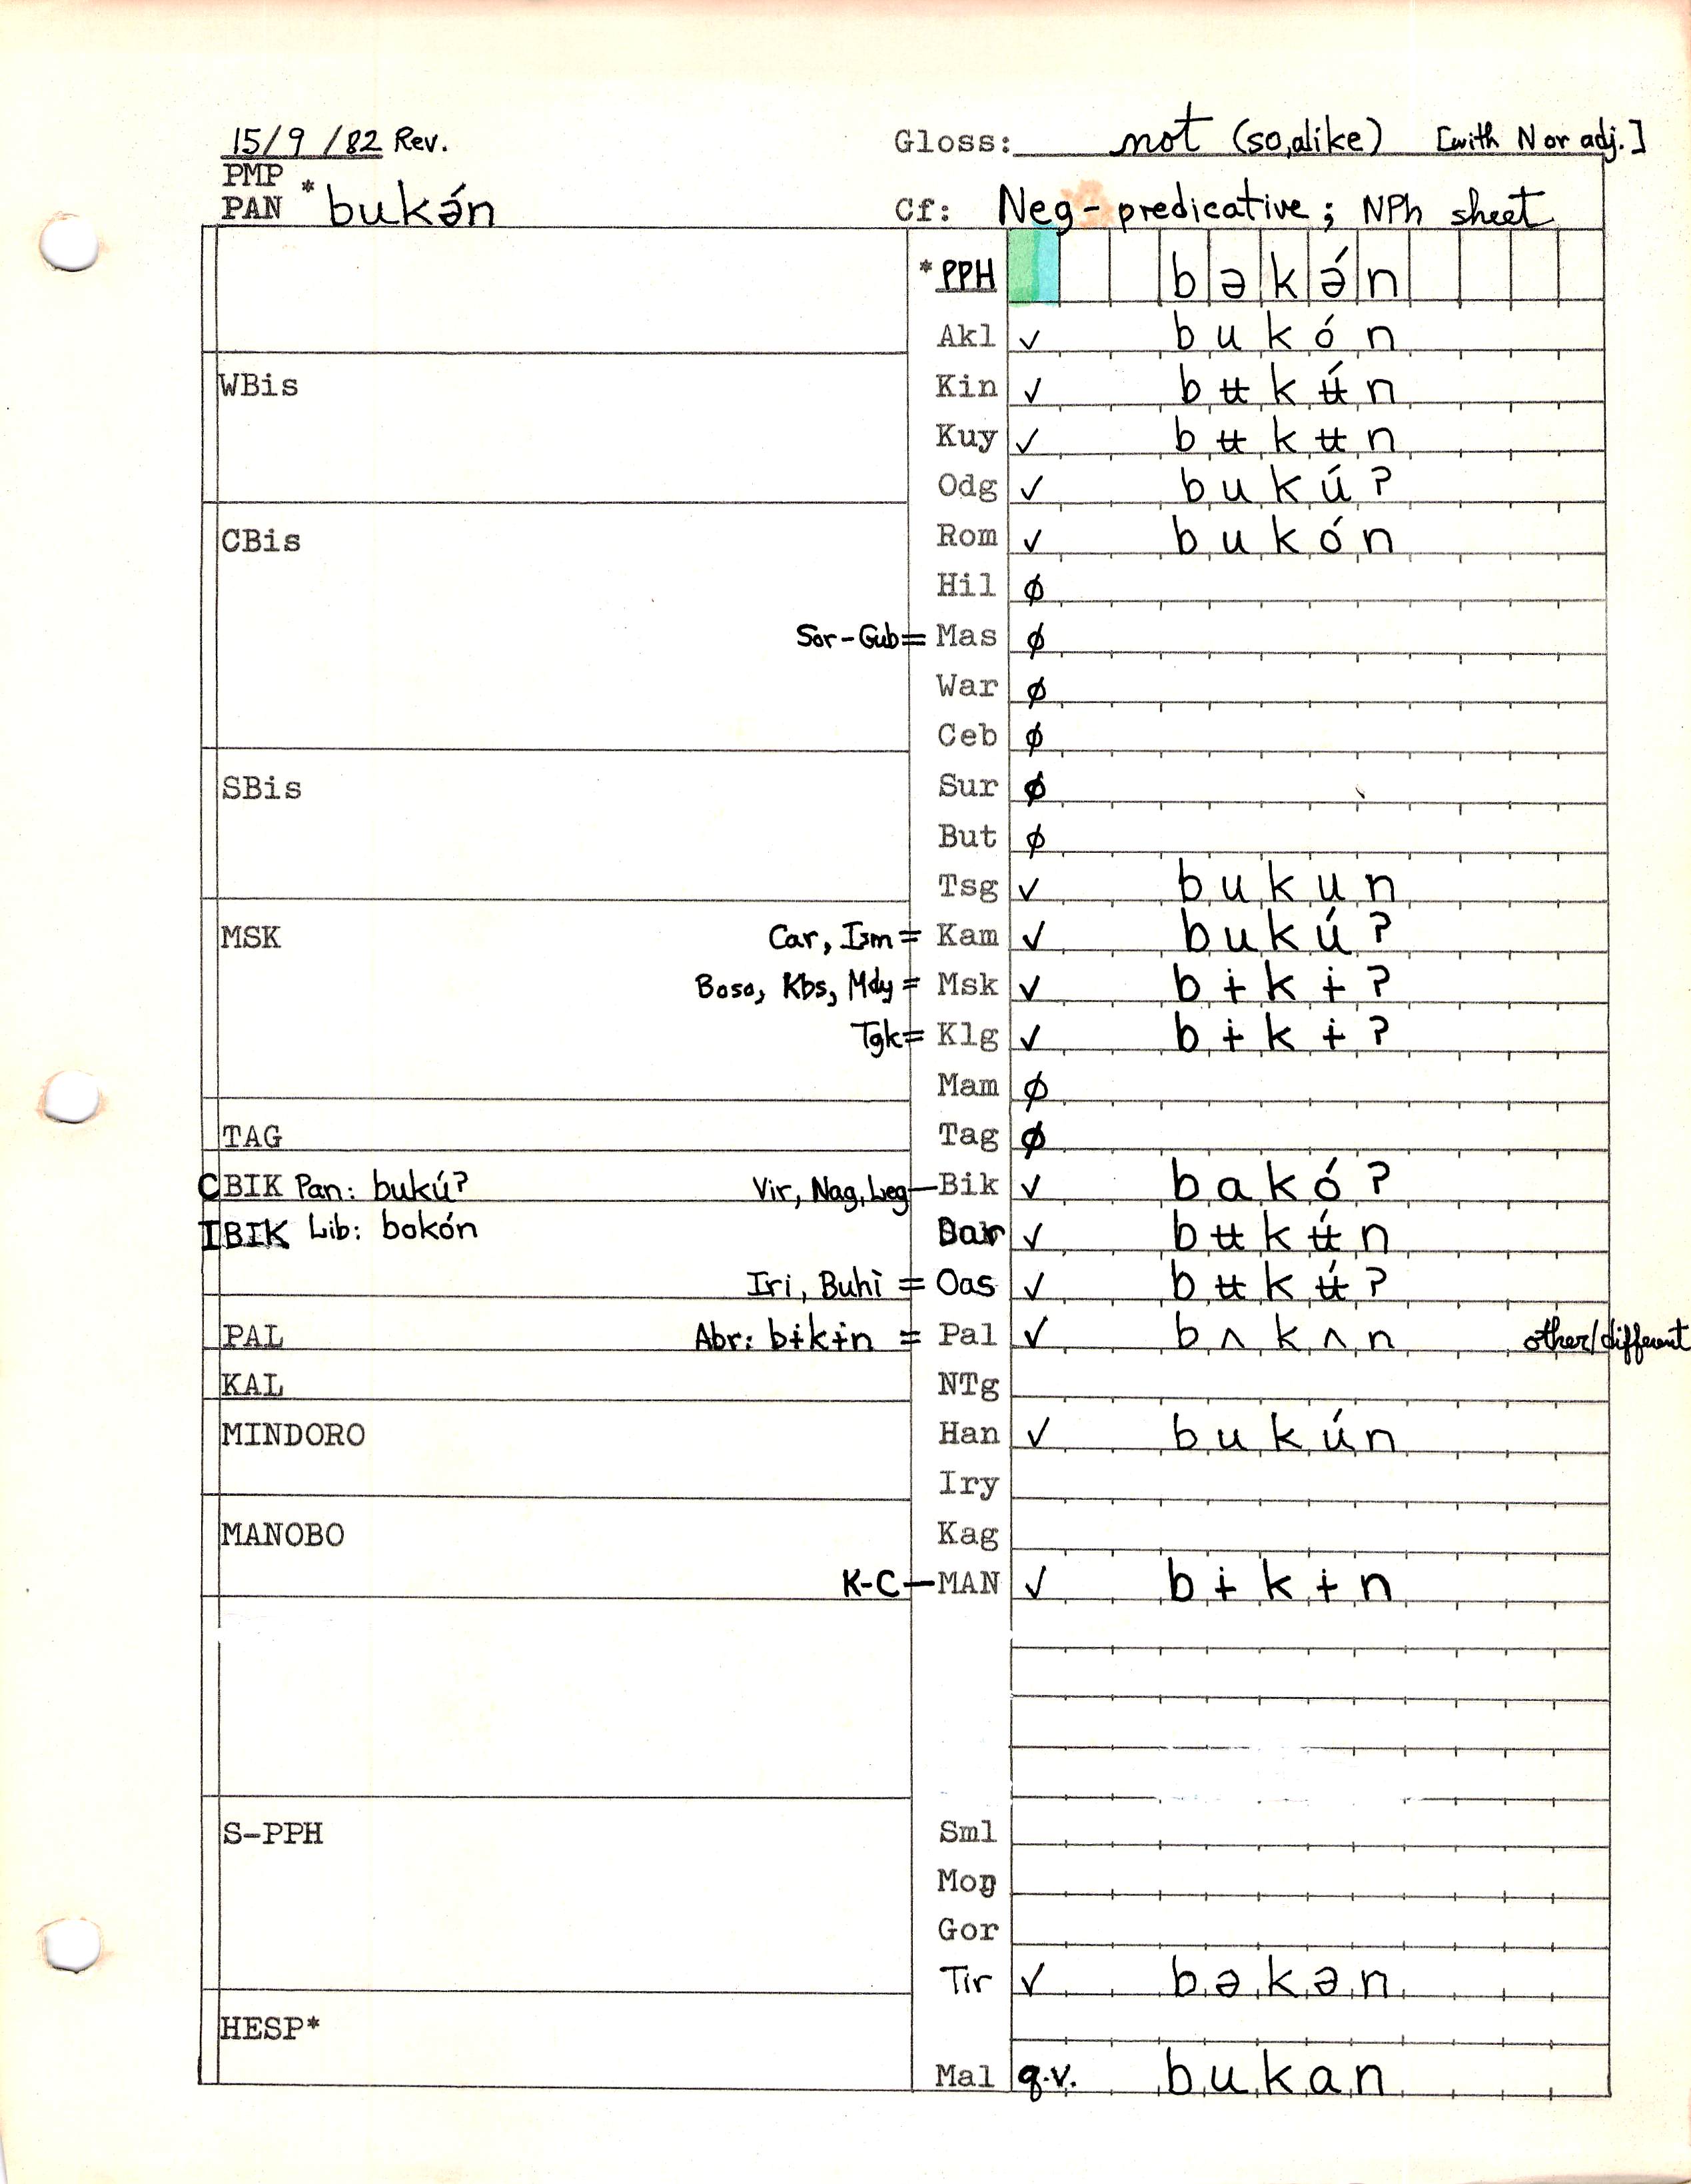 15/9/82 Rev. Gloss: not (so, alike) [with N or adj.]
PMP
PAN *bukə́n Cf: Neg-predicative; NPh sheet
*PPH bəkə́n
Akl ✓ bukón
WBis Kin ✓ bʉkʉ́n
Kuy ✓ bʉkʉn
Odg ✓ bukú?
CBis Rom ✓ bukón
Hil ∅
Sor-Gub = Mas ∅
War ∅
Ceb ∅
SBis Sur ∅
But ∅
Tsg ✓ bukun
MSK Car, Ism = Kam ✓ bukú?
Baso, Kbs, Mdy = Msk ✓ bɨkɨ?
Tgk = Klg ✓ bɨkɨ?
Mam ∅
TAG Tag ∅
CBIK Pan: bukú? Vir, Nag, Leg — Bik ✓ bakó?
IBIK Lib: bokón ✓ bʉkʉ́n
Iri, Buhi = Oas ✓ bʉkʉ́?
PAL Abr: bɨkɨn = Pal ✓ bʌkʌn other/different
KAL NTg
MINDORO Han ✓ bukún
Iry
MANOBO Kag
K-C — MAN ✓ bɨkɨn
S-PPH Sml
Mog
Gor
Tir ✓ bəkən
HESP*
Mal q.v. bukan